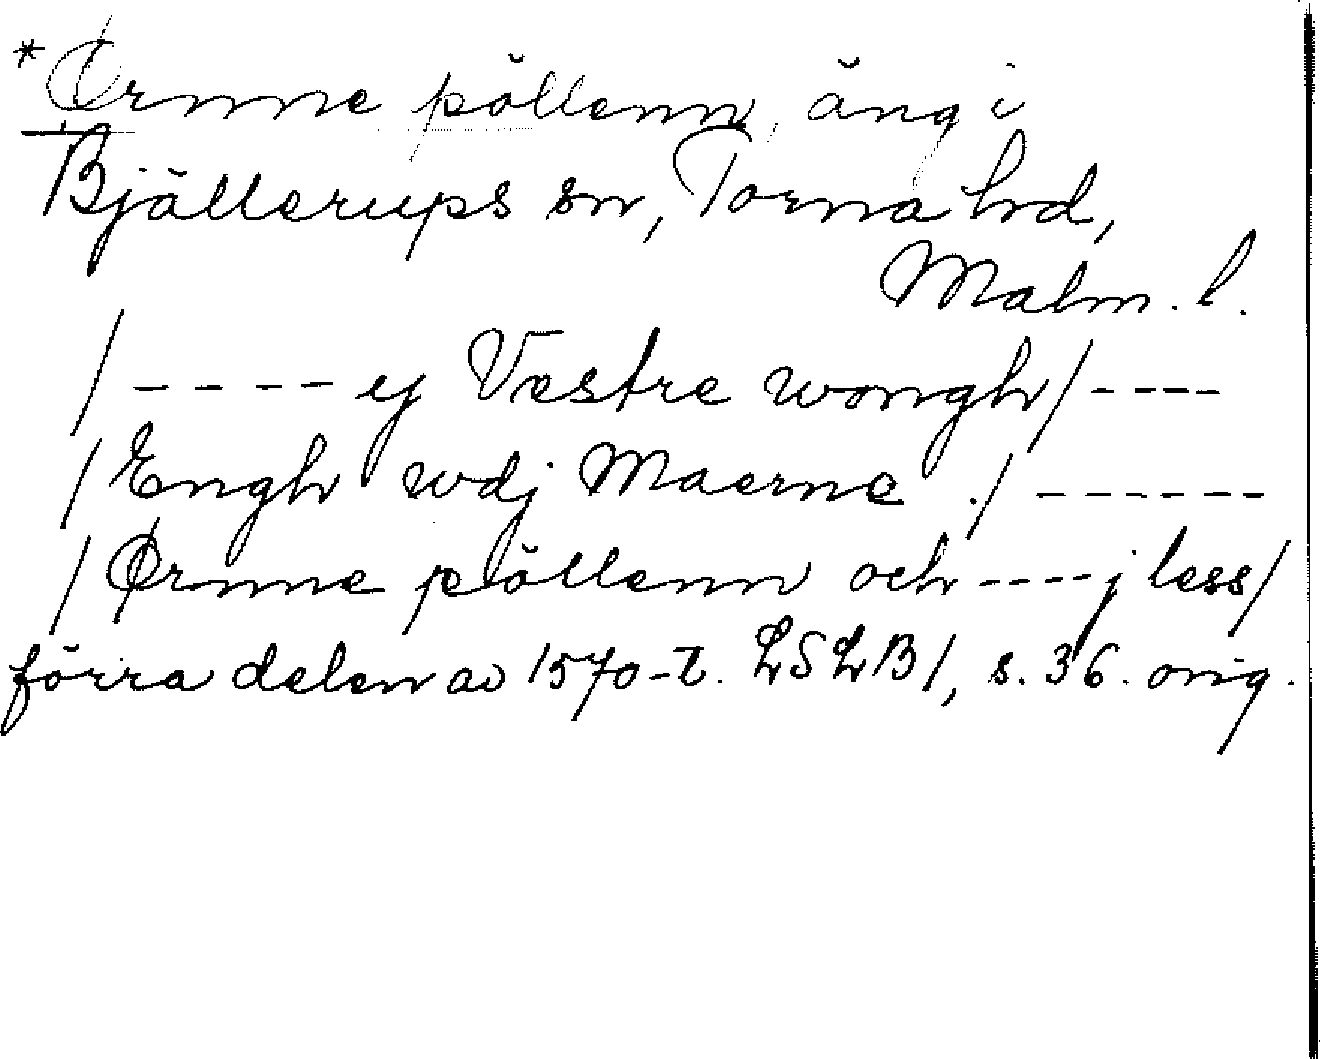 *Ørnne pöllenn, äng i
Bjällerups sn, Torna hd,
Malm. l.
/ - - - - ej Vestre wongh / - - - -
/ Engh wdj Maerne ./ - - - - - -
/ Ørnne pöllenn och - - - - j less /
förra delen av 1570-t. LSLB1, s. 36. orig.